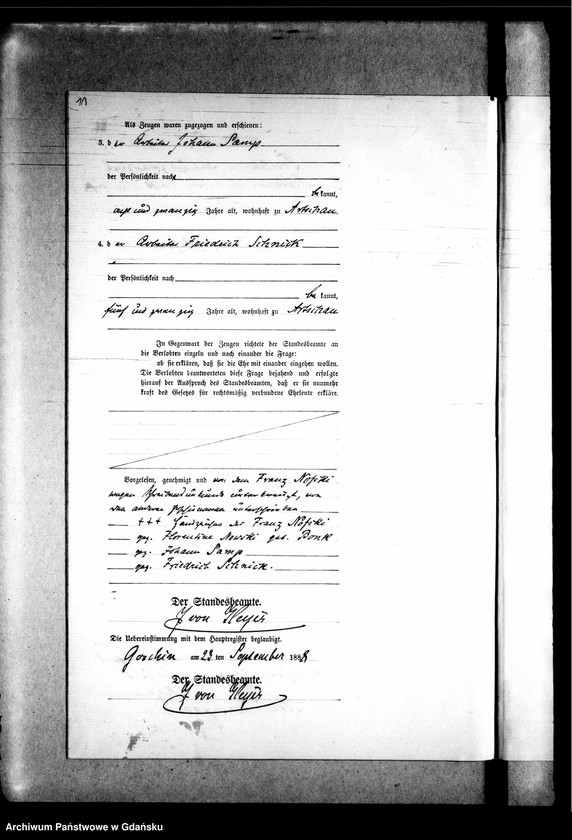 Als Zeugen waren zugezogen und erschienen:
3. der Arbeiter Johann Samp
der Persönlichkeit nach
bekannt,
acht und zwanzig Jahre alt, wohnhaft zu Artschau
4. der Arbeiter Friedrich Schnick
der Persönlichkeit nach
bekannt,
fünf und zwanzig Jahre alt, wohnhaft zu Artschau
In Gegenwart der Zeugen richtete der Standesbeamte an
die Verlobten einzeln und nach einander die Frage:
ob sie erklären, daß sie die Ehe mit einander eingehen wollen.
Die Verlobten beantworteten diese Frage bejahend und erfolgte
hierauf der Ausspruch des Standesbeamten, daß er sie nunmehr
kraft des Gesetzes für rechtsmäßig verbundene Eheleute erkläre.
Vorgelesen, genehmigt und von dem Franz
wegen Schreibensunkunde unterkreuzt, von
den anderen Personen unterschrieben
+++ Handzeichen des Franz
gez. Florentine geb. Bonk
gez. Johann Samp
gez. Friedrich Schnick.
Der Standesbeamte.
von Heyer
Die Uebereinstimmung mit dem Hauptregister beglaubigt.
Goschin am 23 ten September 188
Der Standesbeamte.
von Heyer
Archiwum Państwowe w Gdańsku